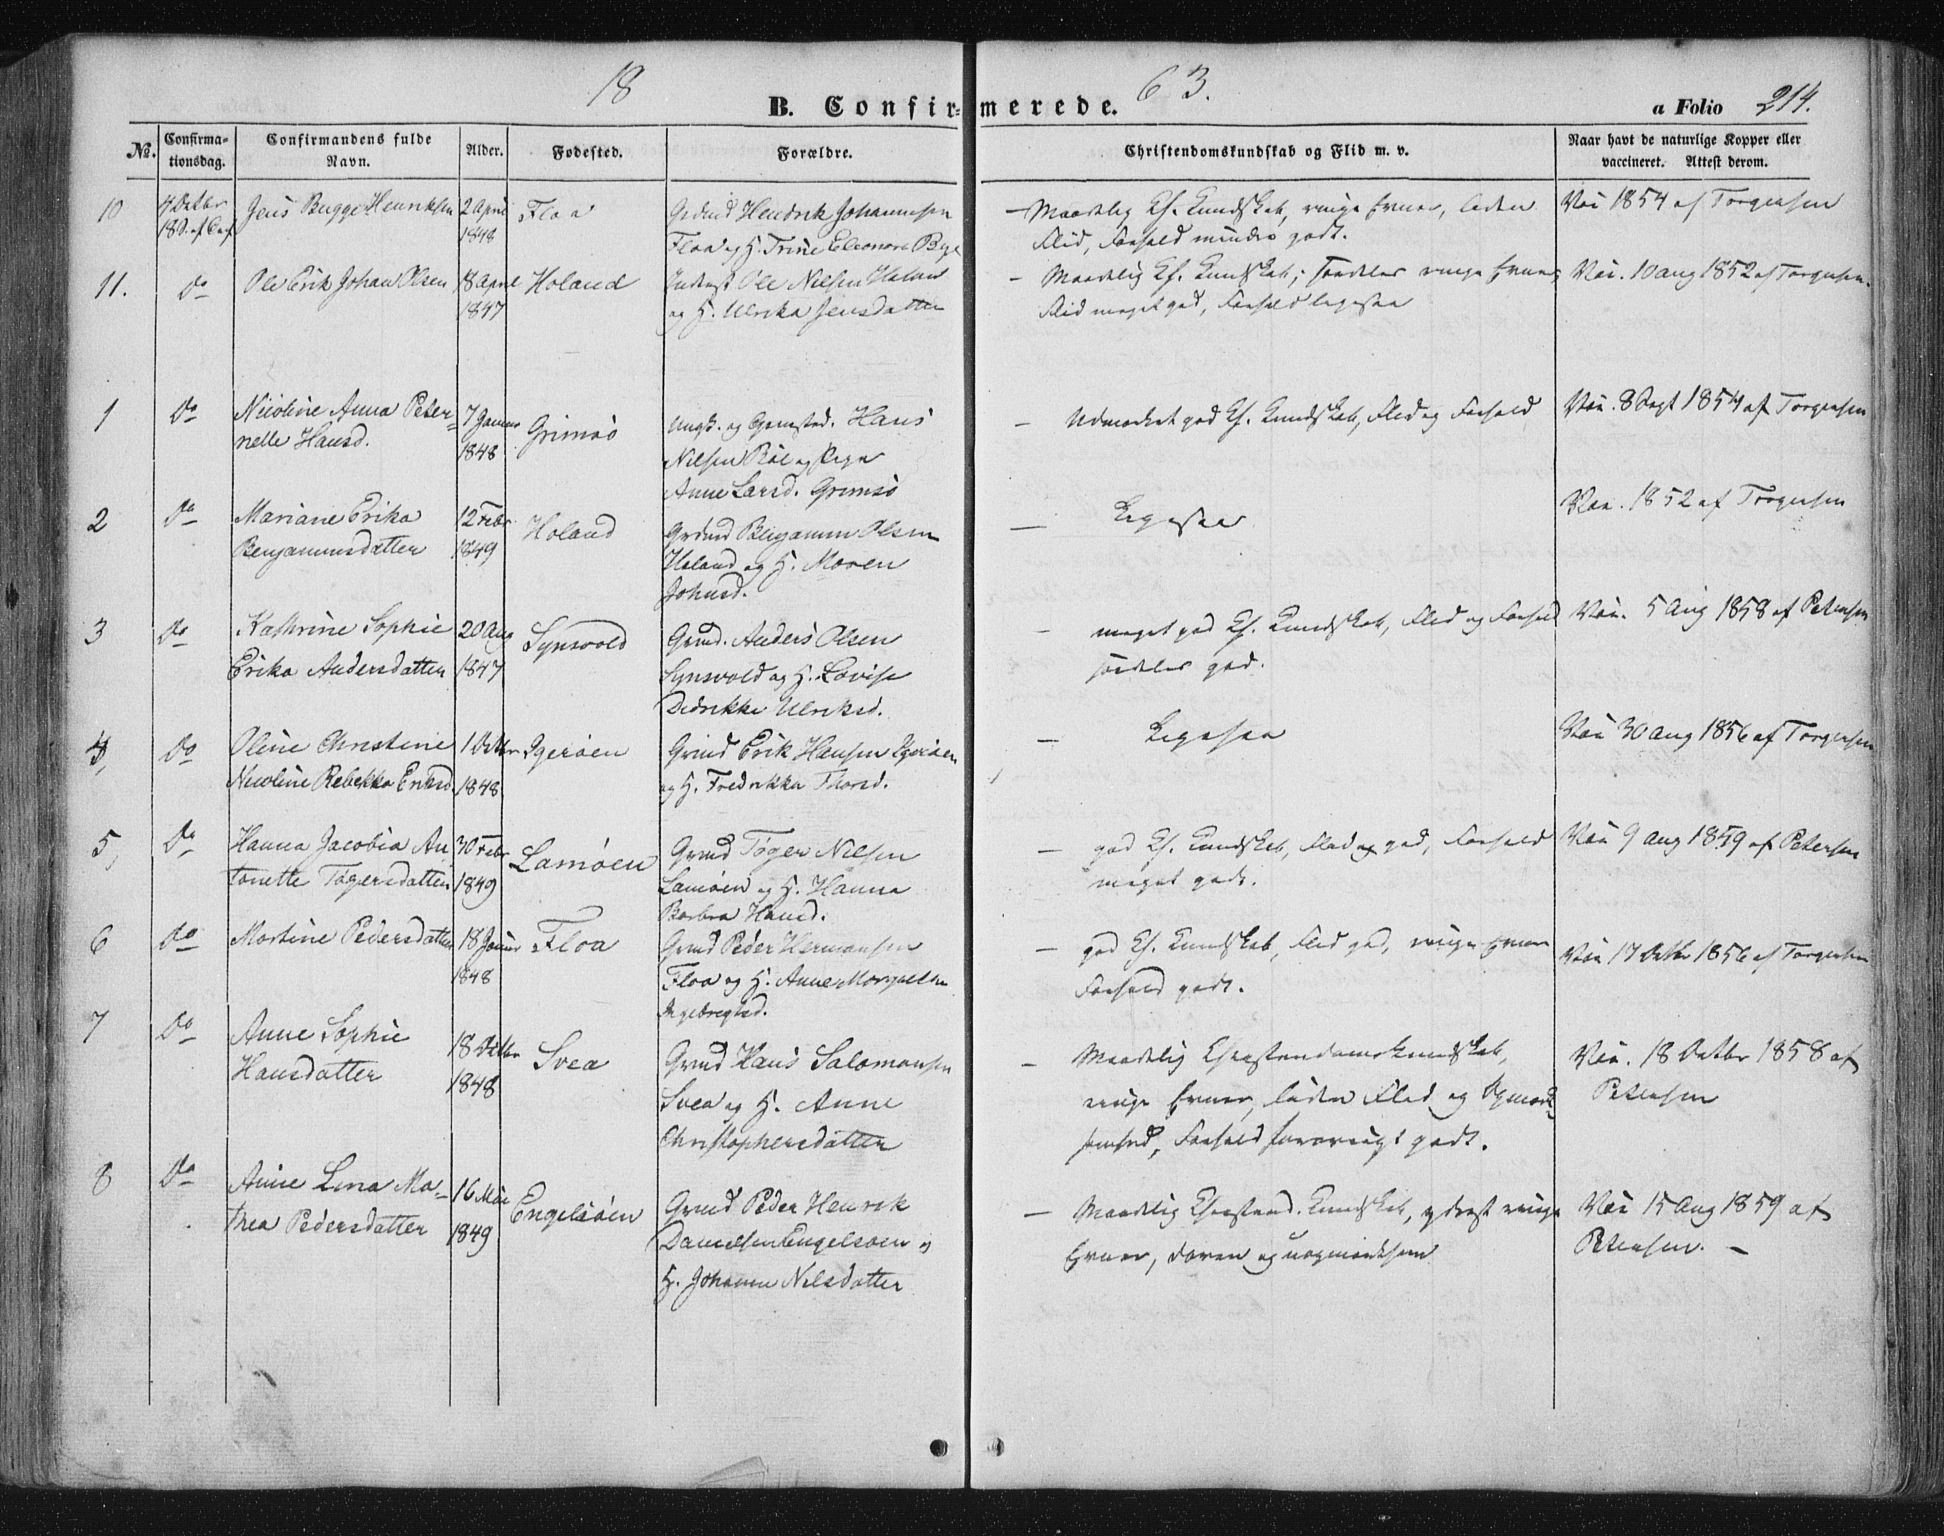 18 63.
B. Confirmerede.
a Folio 214.
No. Confirmationsdag. Confirmandens fulde Navn. Alder. Fødested. Forældre. Christendomskundskab og Flid m. v. Naar havt de naturlige Kopper eller vaccineret. Attest derom.
10 4 Octbr Jens Bugge Henriksen 2 April Floa Grdmd Hendrik Johannesen — Maadelig Ch. Kundskab, ringe Evner, liden Vac 1854 af Torgersen
1848 Floa og H. Trine Eleonora Flid, Forhold mindre godt.
11. Do Ole Erik Johan Olsen 18 April Holand Inderst Ole Nilsen Holand — Maadelig Ch. Kundskab, ringe Evner, Vac. 10 Aug 1852 af Torgersen.
1847 og H. Ulrika Jensdatter Flid meget god, Forhold ligesaa
1 Do Nicoline Anna Peter- 7 Januar Grimsö Ungk. og Hans — Udmærket god Ch. Kundskab, Flid og Forhold Vac. 8 Sept 1854 af Torgersen
nelle Hansd. 1848 Nilsen og Pige
Anne Larsd. Grimsö
2 Do Mariane Erika 12 Febr Holand Grdmd Benjamin Olsen — Ligesaa Vac. 1852 af Torgersen
Benjaminsdatter 1849 Holand og H. Maren
Johnsd.
3 Do Kathrine Sophie 20 Aug Synsvold Grmd. Anders Olsen — meget god Ch. Kundskab, Flid og Forhold Vac. 5 Aug 1858 af Petersen
Erika Andersdatter 1847 Synsvold og H. Lovise særdeles god.
Didrikke Ulriksd.
4, Do Oline Christine 1 Octbr Igeröen Grmd Erik Hansen Igeröen — Ligesaa Vac 30 Aug 1856 af Torgersen
Nicoline Rebekka Eriksd. 1848 og H. Fredrikka Thorsd.
5, Do Hanna Jacobia An 30 Febr Lamöen Grmd Töger Nilsen — god Ch. Kundskab, Flid god, Forhold Vac 9 Aug 1859 af Petersen
tonette Tögersdatter 1849 Lamöen og H. Hanna meget godt.
Barbra Hansd.
6 Do Martine Pedersdatter 18 Januar Floa Grmd Peder Hermansen — god Ch. Kundskab, Flid god, ringe Evner Vac 17 Octbr 1856 af Torgersen
1848 Floa og H. Anne Margrethe Forhold godt.
Ingebregtsd.
7 Do Anne Sophie 18 Octbr Svea Grmd Hans Salomonsen — Maadelig Christendomskundskab, Vac. 18 Octbr 1858 af
Hansdatter 1848 Svea og H. Anne ringe Evner, liden Flid og Opmærk- Petersen
Christophersdatter somhed, Forhold forøvrigt godt.
8 Do Anne Lena Ma- 16 Mai Engelsöen Grmd Peder Henrik — Maadelig Christend. Kundskab, yderst ringe Vac 15 Aug 1859 af
thea Pedersdatter 1849 Danielsen Engelsöen og Evner, doven og uopmærksom Petersen. —
H. Johanna Nilsdatter